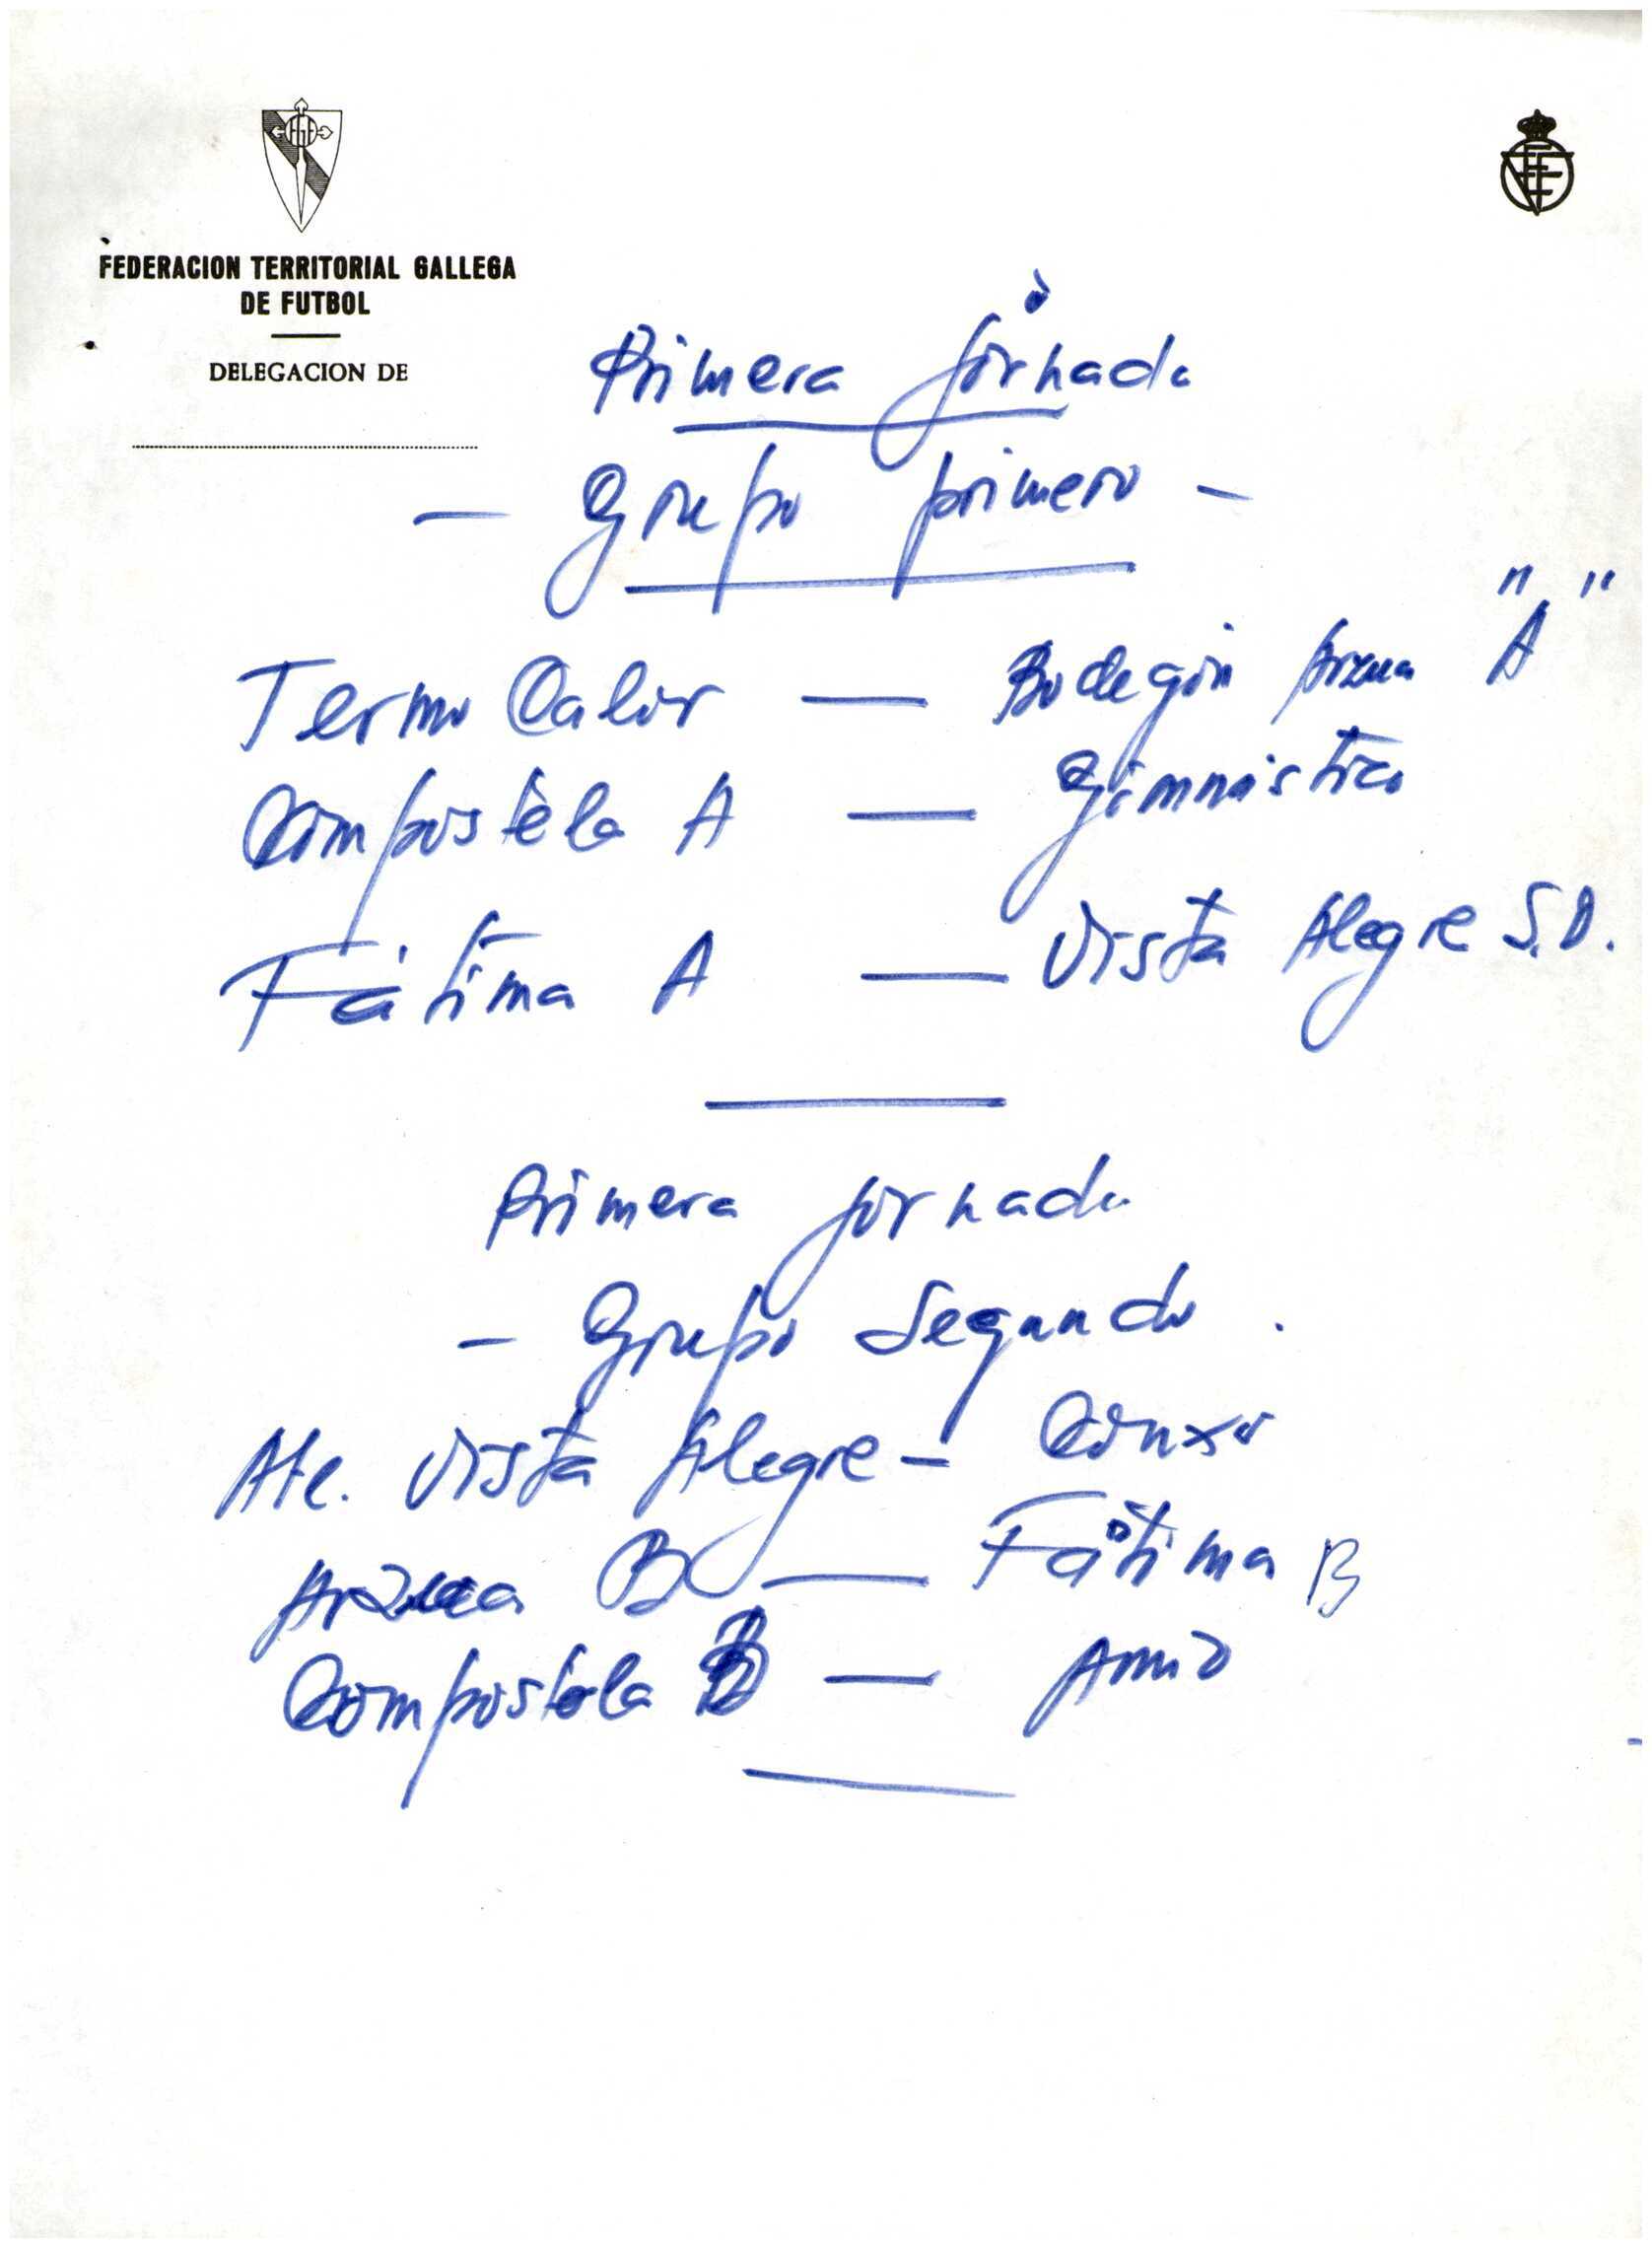 FEDERACION TERRITORIAL GALLEGA
DE FUTBOL
DELEGACION DE
Primera jornada
— Grupo primero —
Termo Calor — Bodegón Arzua "A"
Compostela A — Gimnástico
Fátima A — Vista Alegre S.D.
Primera jornada
- Grupo Segundo.
Atc. Vista Alegre - Conxo
Arzua B — Fátima B
Compostela B — Amio